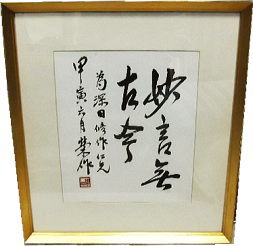 妙言無
古今
為深田修作仁兄
甲寅六月 榮作